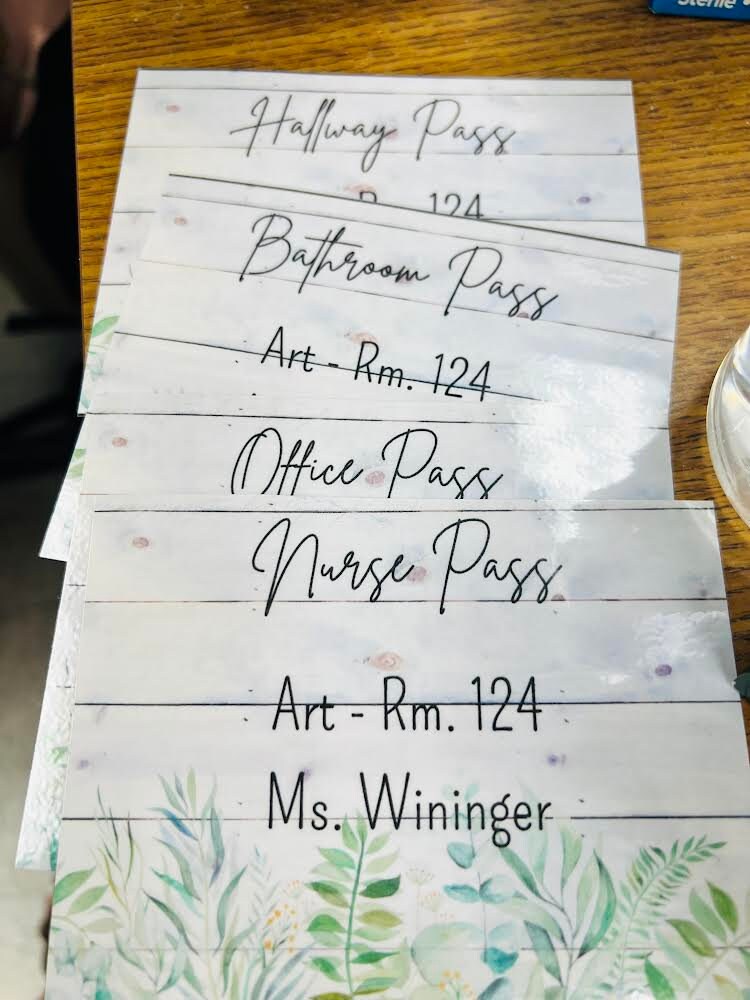 Sterile
Hallway Pass
124
Bathroom Pass
Art - Rm. 124
Office Pass
Nurse Pass
Art - Rm. 124
Ms. Wininger